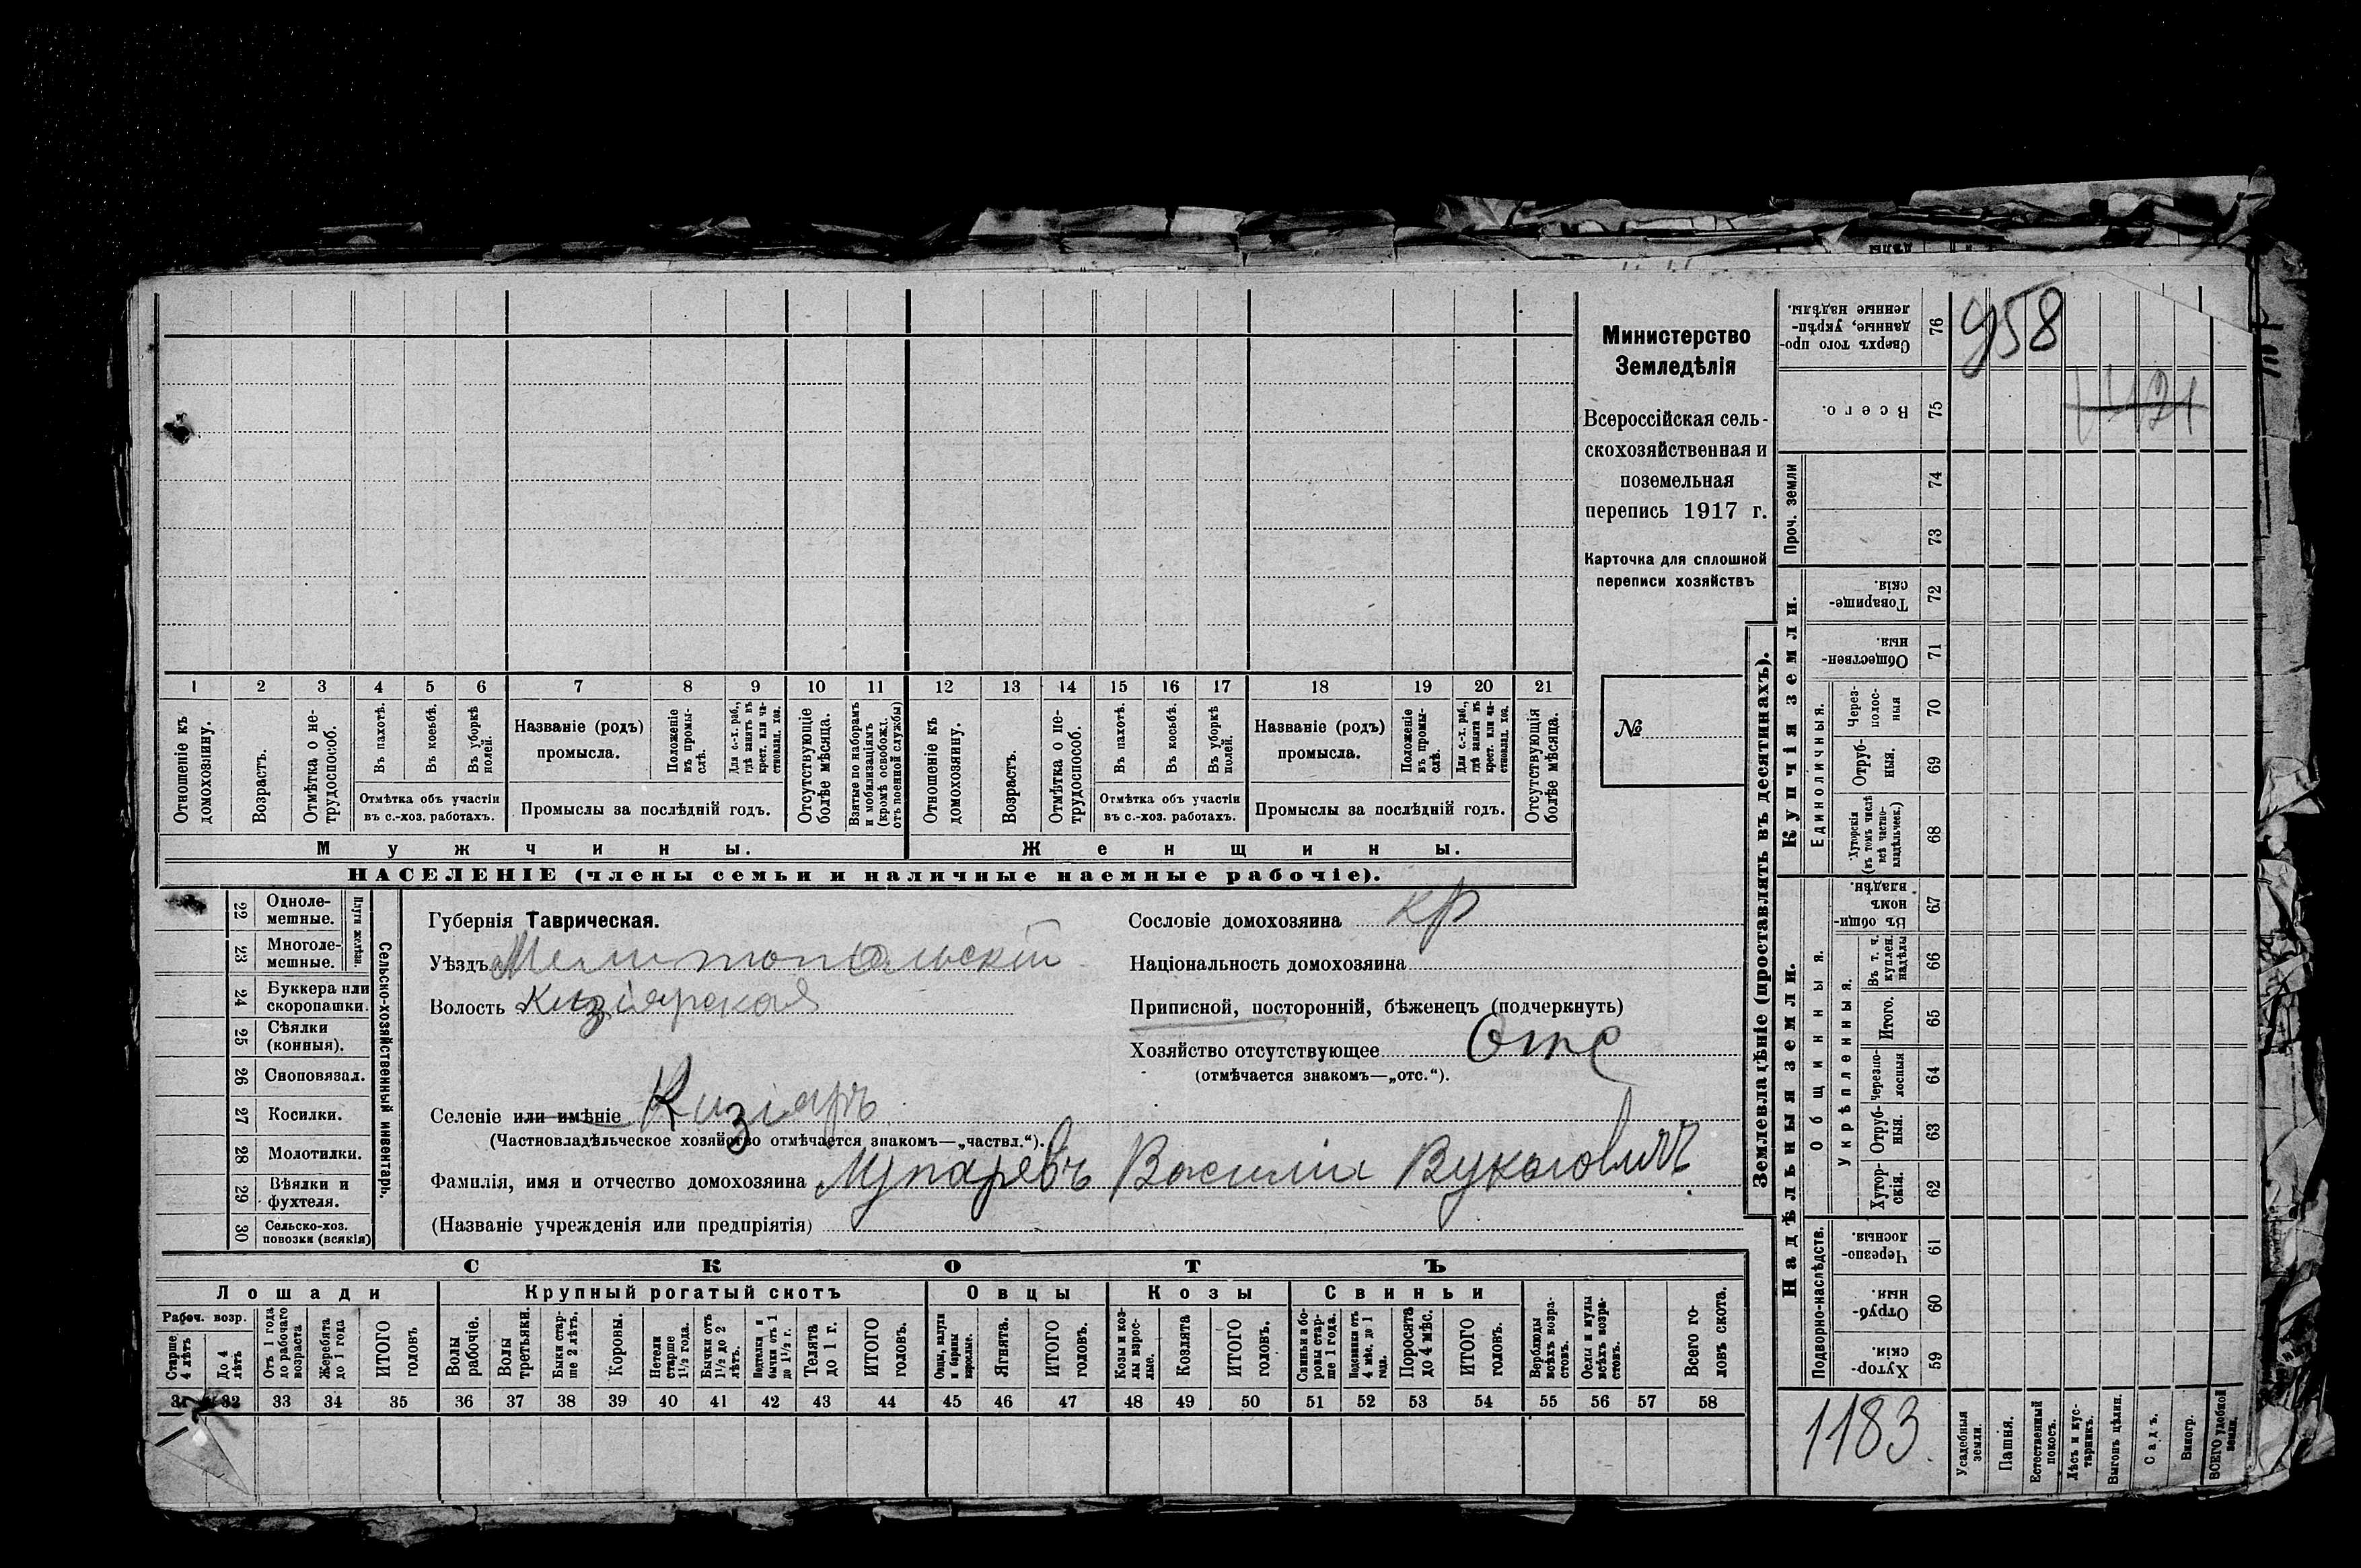 Министерство
Земледѣлія
Всероссійская сель-
скохозяйственная и
поземельная
перепись 1917 г.
Карточка для сплошной
переписи хозяйствъ
№
1 2 3 4 5 6 7 8 9 10 11 12 13 14 15 16 17 18 19 20 21
Отношеніе къ домохозяину.
Возрастъ.
Отмѣтка о не-трудоспособ.
Въ пахотѣ.
Въ косьбѣ.
Въ уборкѣ полей.
Отмѣтка объ участіи въ с.-хоз. работахъ.
Названіе (родъ) промысла.
Положеніе въ промы-слѣ.
Для с.-х. раб., гдѣ занятъ въ крест. или ча-стновлад. хоз.
Промыслы за послѣдній годъ.
Отсутствующіе болѣе мѣсяца.
Взятые по наборамъ и мобилизаціямъ (кромѣ освобожд. отъ военной службы)
Отношеніе къ домохозяину.
Возрастъ.
Отмѣтка о не-трудоспособ.
Въ пахотѣ.
Въ косьбѣ.
Въ уборкѣ полей.
Отмѣтка объ участіи въ с.-хоз. работахъ.
Названіе (родъ) промысла.
Положеніе въ промы-слѣ.
Для с.-х. раб., гдѣ занята въ крест. или ча-стновлад. хоз.
Промыслы за послѣдній годъ.
Отсутствующія болѣе мѣсяца.
Мужчины.
Женщины.
НАСЕЛЕНІЕ (члены семьи и наличные наемные рабочіе).
22 Одноле-мешные.
23 Многоле-мешные.
Плуги желѣзн.
24 Буккера или скоропашки.
25 Сѣялки (конныя).
26 Сноповязал.
27 Косилки.
28 Молотилки.
29 Вѣялки и фухтеля.
30 Сельско-хоз. повозки (всякія)
Сельско-хозяйственный инвентарь.
Губернія Таврическая.
Уѣздъ Мелитопольскій
Волость Кизіярская
Селеніе или имѣніе Кизіяръ
(Частновладѣльческое хозяйство отмѣчается знакомъ—„частвл.“).
Сословіе домохозяина кр
Національность домохозяина
Приписной, посторонній, бѣженецъ (подчеркнуть)
Хозяйство отсутствующее Отс
(отмѣчается знакомъ—„отс.“).
Фамилія, имя и отчество домохозяина Василій
(Названіе учрежденія или предпріятія)
СКОТЪ
Лошади
Крупный рогатый скотъ
Овцы
Козы
Свиньи
Рабоч. возр.
Старше 4 лѣтъ
До 4 лѣтъ
Отъ 1 года до рабочаго возраста
Жеребята до 1 года
ИТОГО головъ
Волы рабочіе.
Волы третьяки.
Быки стар-ше 2 лѣтъ.
Коровы.
Нетели старше 1½ года.
Бычки отъ 1½ до 2 лѣтъ.
Подтелки и бычки отъ 1 до 1½ г.
Телята до 1 г.
ИТОГО головъ.
Овцы, валухи и бараны взрослые.
Ягнята.
ИТОГО головъ.
Козы и коз-лы взрос-лые.
Козлята
ИТОГО головъ.
Свиньи и бо-ровы стар-ше 1 года.
Подсвинки отъ 4 мѣс. до 1 года.
Поросята до 4 мѣс.
ИТОГО головъ.
Верблюды всѣхъ возра-стовъ.
Ослы и мулы всѣхъ возра-стовъ.
Всего го-ловъ скота.
31 32 33 34 35 36 37 38 39 40 41 42 43 44 45 46 47 48 49 50 51 52 53 54 55 56 57 58
Землевладѣніе (проставлять въ десятинахъ).
Надѣльныя земли.
Купчія земли.
Проч. земли
Подворно-наслѣдств.
Общинныя.
Укрѣпленныя.
Единоличныя.
Сверхъ того про-данные, укрѣп-ленные надѣлы. 76
Всего. 75
74
73
Товарище-скія. 72
Обществен-ныя. 71
Через-полос-ныя 70
Отруб-ныя. 69
Хуторскія (въ томъ числѣ всѣ частно-владѣльческ.) 68
Въ общин-номъ владѣн. 67
Въ т. ч. куплен. надѣлы 66
Итого. 65
Черезпо-лосныя 64
Отруб-ныя. 63
Хутор-скія. 62
Черезпо-лосныя. 61
Отруб-ныя. 60
Хутор-скія. 59
Усадебныя земли.
Пашня.
Естественный покосъ.
Лѣсъ и кус-тарникъ.
Выгонъ цѣлин.
Садъ.
Виногр.
ВСЕГО удобной земли.
958
1183